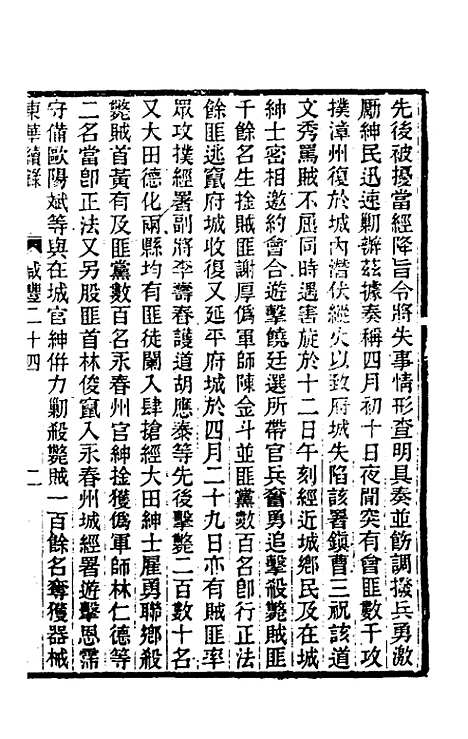 先後被擾當經降旨令將失事情形查明具奏並飭調撥兵勇激
勵紳民迅速剿辦茲據奏稱四月初十日夜間突有會匪數千攻
撲漳州復於城內潛伏縱火以致府城失陷該署鎭曹三祝該道
文秀罵賊不屈同時遇害旋於十二日午刻經近城鄉民及在城
紳士密相邀約會合遊擊饒廷選所帶官兵奮勇追擊殺斃賊匪
千餘名生捦賊匪謝厚僞軍師陳金斗並匪黨數百名卽行正法
餘匪逃竄府城收復又延平府城於四月二十九日亦有賊匪率
眾攻撲經署副將李壽春護道胡應泰等先後擊斃二百數十名
又大田德化兩縣均有匪徒闌入肆搶經大田紳士雇勇聯鄉殺
斃賊首黃有及匪黨數百名永春州官紳捦獲僞軍師林仁德等
二名當卽正法又另股匪首林俊竄入永春州城經署遊擊恩霈
守備歐陽斌等與在城官紳倂力剿殺斃賊一百餘名奪獲器械
東華續錄 咸豐二十四 二